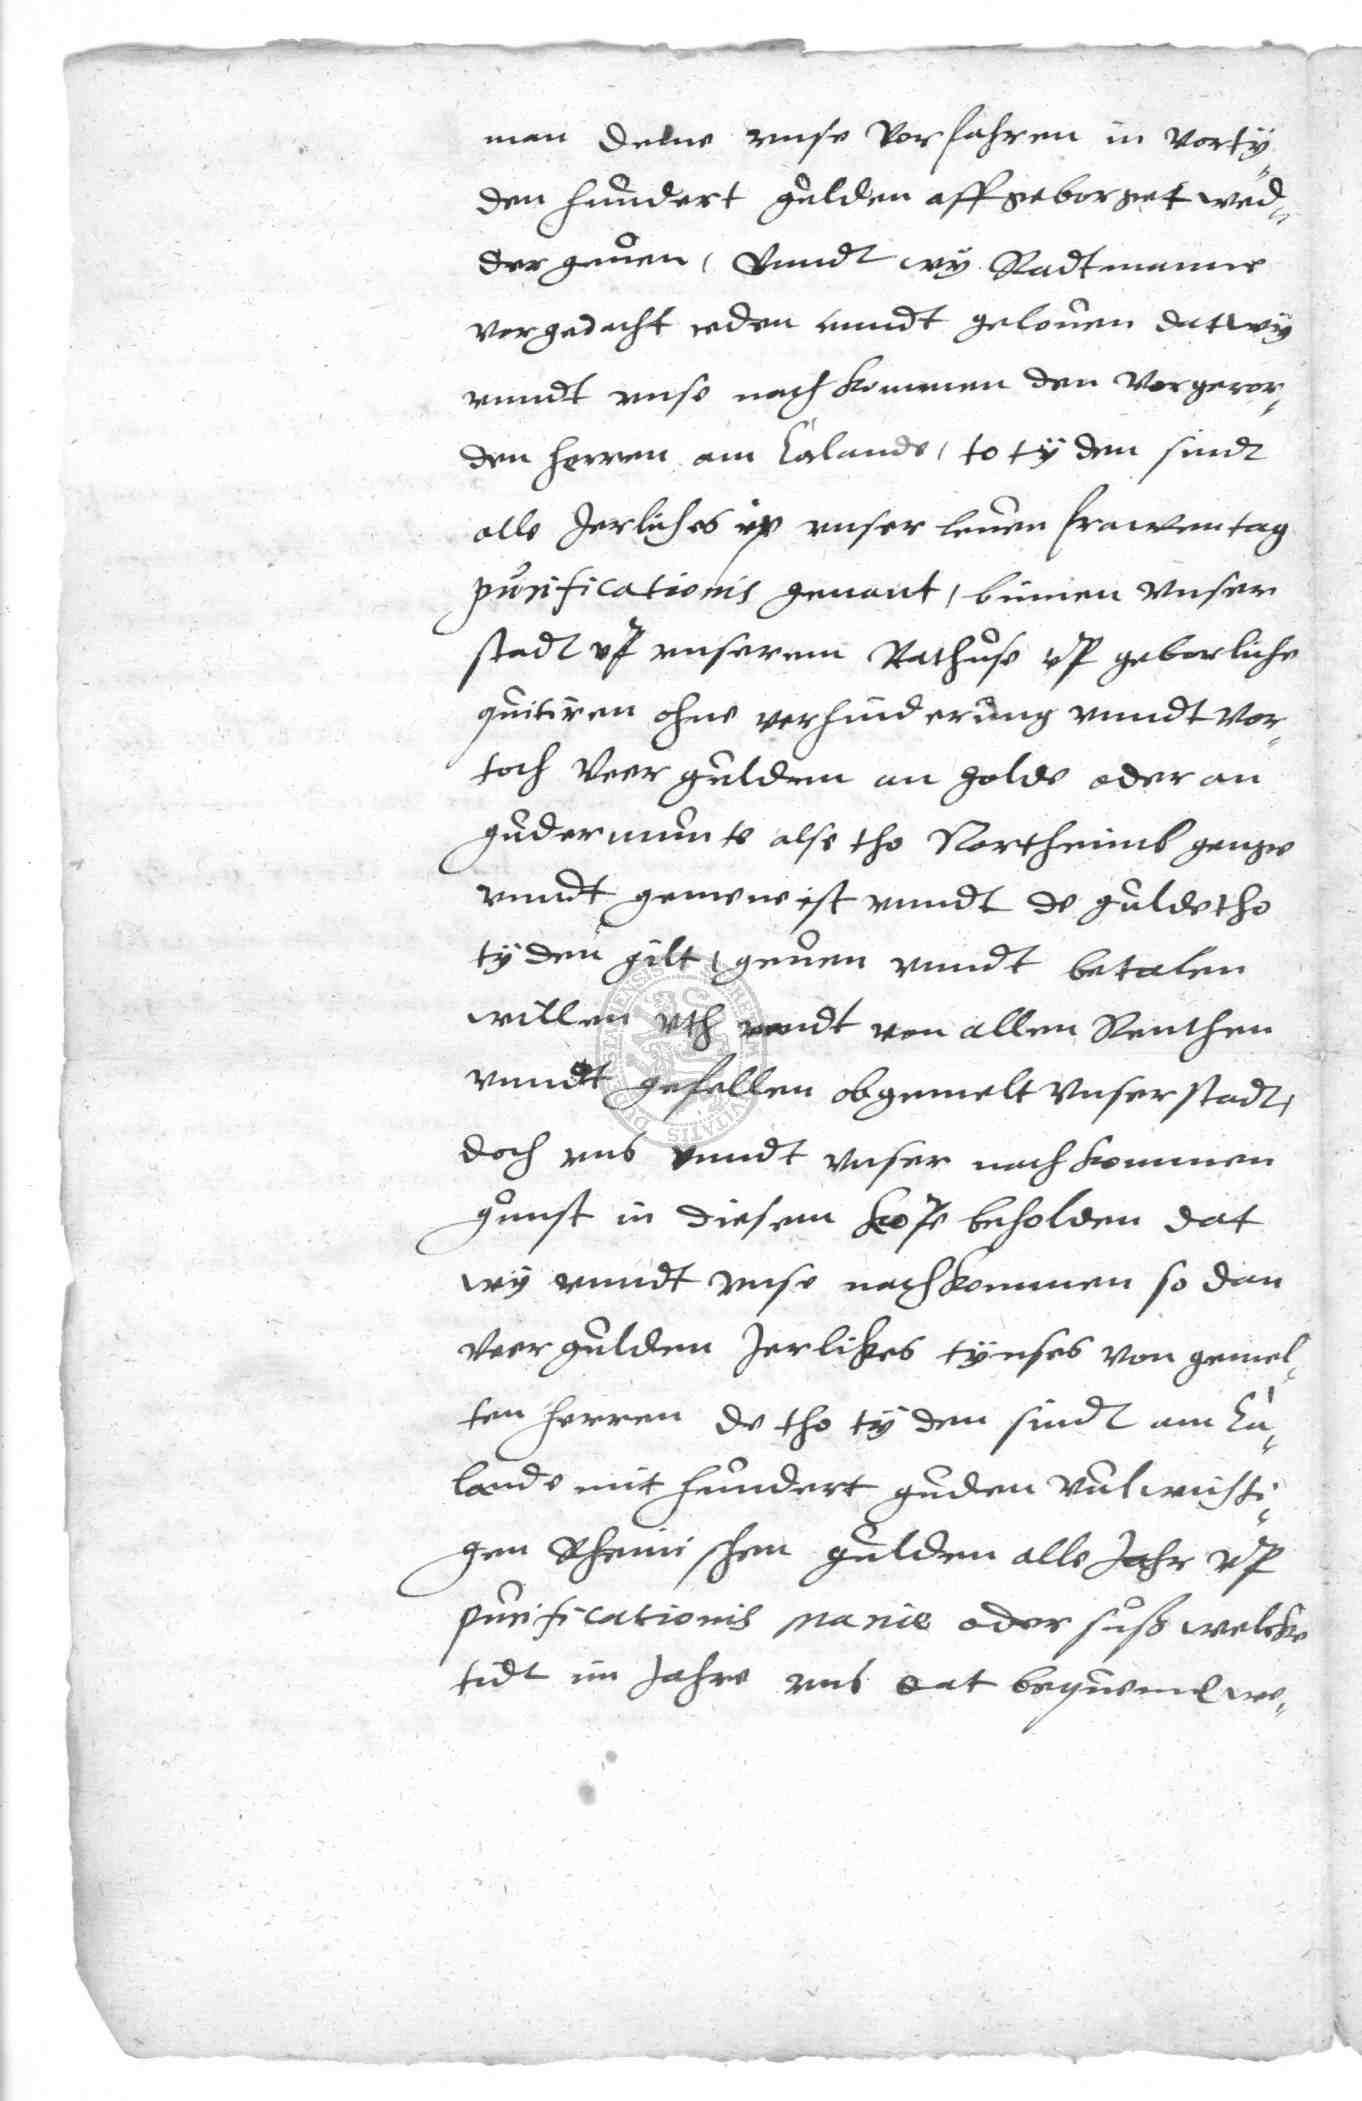 man deme unse Vorfahren in Vorty¬
den hundert gulden affgeborget wed¬
der geuen, Vnndt wy Radtmanne
vorgedacht reden vnndt gelouen dat wy
vnndt vnse nachkommen den Vorgeror¬
den herren am Calande, to tyden sindt
alle Jerliches vp vnser leuen frawentag
purificationis genant, binnen vnser
stadt vp vnserem Rathuse vp geborliche
quitiren ohne verhinderung vnndt Vor¬
toch Veer gulden an golde oder an
guder munte alse tho Northeimb genge
vnndt gemene ist vnndt de gulde tho
tyden gilt, geuen vnndt betalen
willen vth vnndt von allen Renthen
vnndt gefellen obgemelt vnser stadt,
doch vns vnndt vnser nachkommen
gunst in diesem kope beholden dat
wy vnndt vnse nachkommen so dan
Veer gulden Jerlikes tynses von gemel¬
ten herren de tho tyden sindt am Ca¬
lande mit hundert guden vulwichti¬
gen Rheinischen gulden alle Jahr vp
purificationis mariæ oder suß welcke
tidt im Jahre vns dat bequemel we¬
DUCALIS CIVITATIS